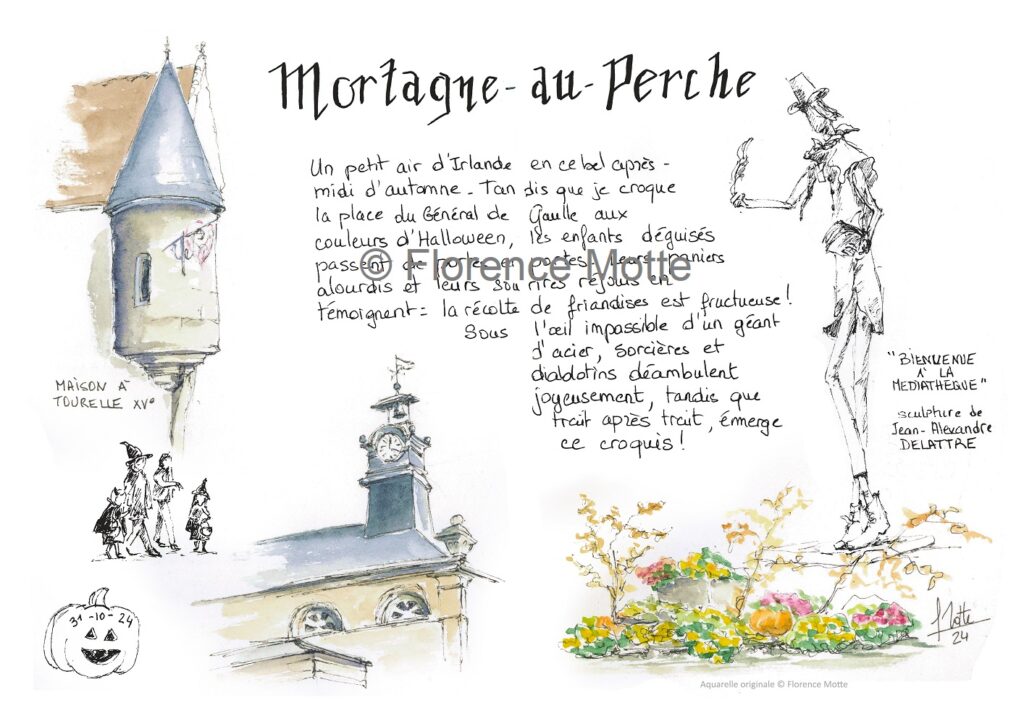 Mortagne-au-Perche
Un petit air d'Irlande en ce bel après-
midi d'automne - Tandis que je croque
la place du Général de Gaulle aux
couleurs d'Halloween, les enfants déguisés
passent de portes en portes. Leurs paniers
alourdis et leurs sourires réjouis en
témoignent : la récolte de friandises est fructueuse !
Sous l'œil impassible d'un géant
d'acier, sorcières et
diablotins déambulent
joyeusement, tandis que
trait après trait, émerge
ce croquis !
© Florence Motte
MAISON À
TOURELLE XVe
"BIENVENUE
À LA
MEDIATHEQUE"
sculpture de
Jean-Alexandre
DELATTRE
31-10-24
Motte
24
Aquarelle originale © Florence Motte